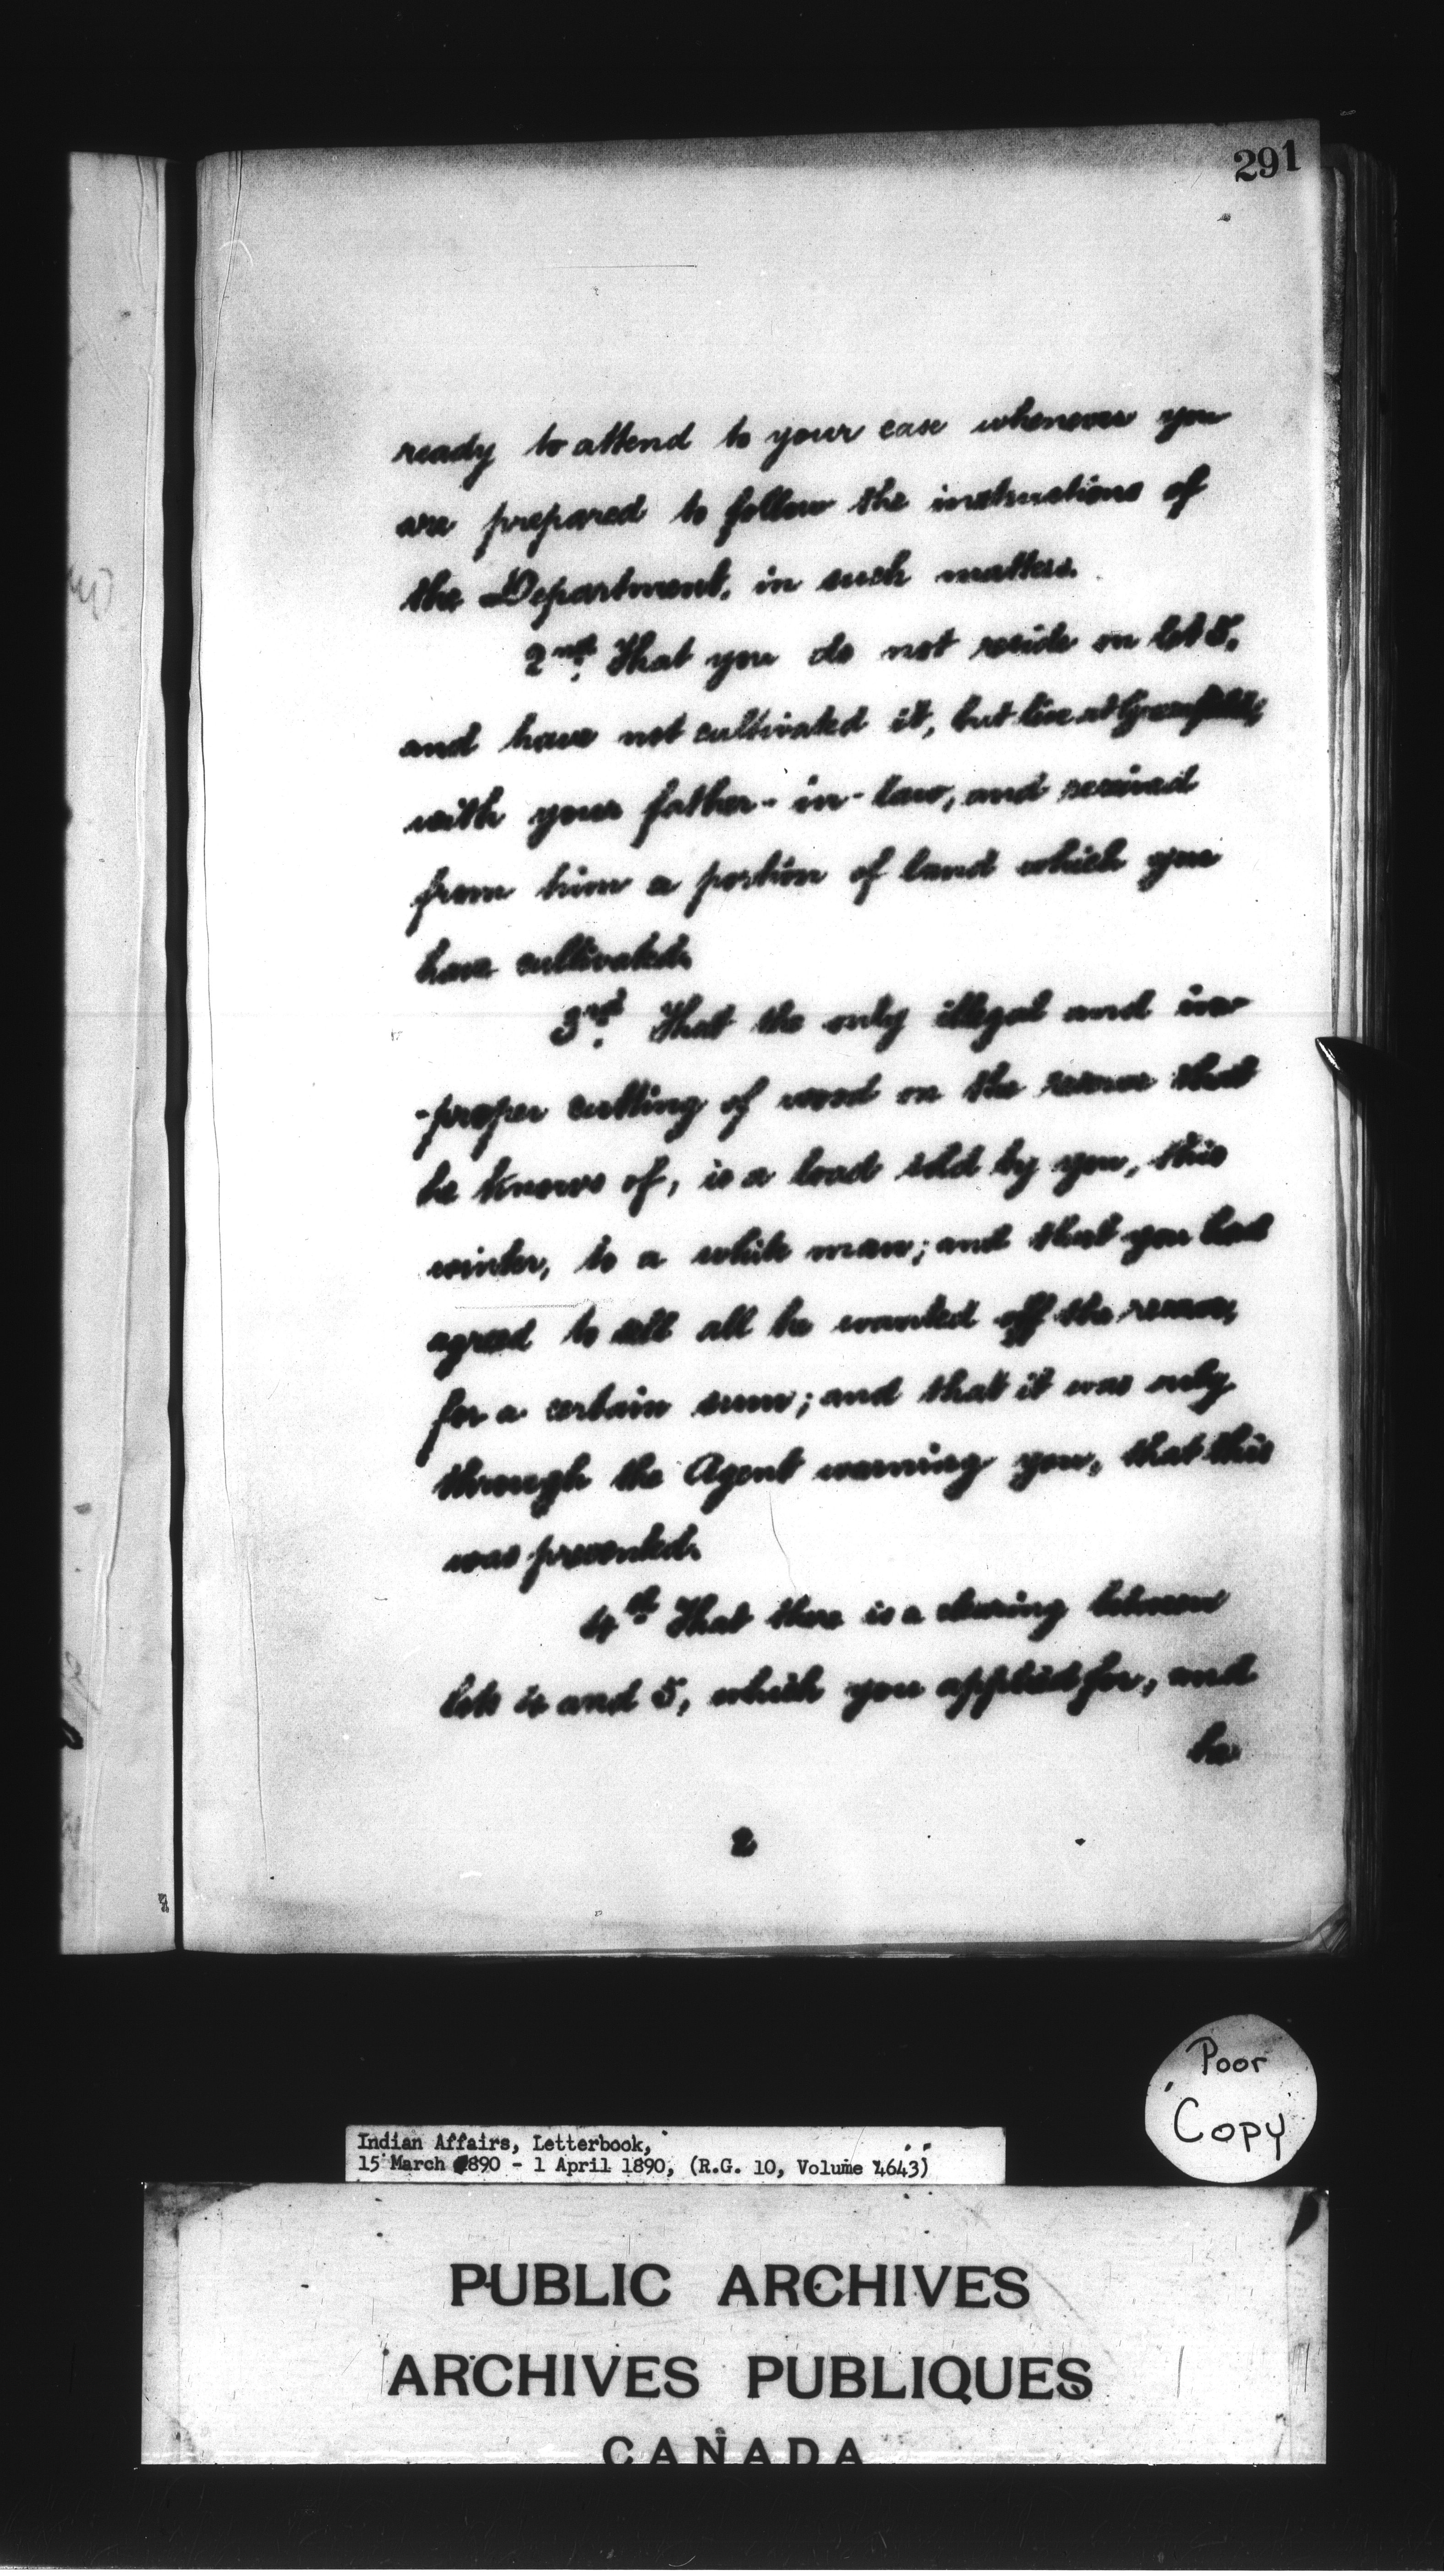 291
ready to attend to your case whenever you
are prepared to follow the instructions of
the Department, in such matters.
2nd. That you do not reside on lot 5,
and have not cultivated it, but live at
with your father-in-law, and received
from him a portion of land which you
have cultivated.
3rd. That the only illegal and im
-proper cutting of wood on the reserve that
he knows of, is a load sold by you, this
winter, to a white man; and that you had
agreed to sell all he wanted off the reserve,
for a certain sum; and that it was only
through the Agent warning you, that this
was prevented.
4th. That there is a clearing between
lots 4 and 5, which you applied for, and
he
2
Poor
Copy
Indian Affairs, Letterbook,
15 March 1890 - 1 April 1890, (R.G. 10, Volume 4643)
PUBLIC ARCHIVES
ARCHIVES PUBLIQUES
CANADA